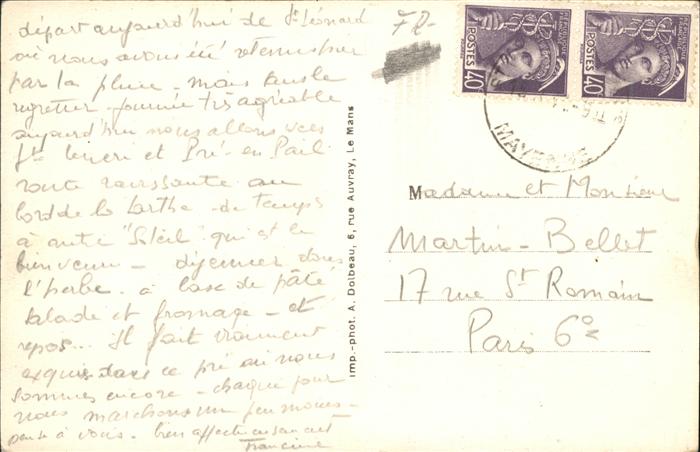 départ aujourd'hui de St Léonard
où nous avons été retenus hier
par la pluie - mais sans le
regretter - journée très agréable
aujourd'hui nous allons vers
et Pré-en-Pail
route ravissante au
bord de la Sarthe - de temps
à autre "Soleil" qui est le
bienvenu - déjeuner dans
l'herbe à base de pâté
salade et fromage - et
repos... il fait vraiment
exquis dans ce pré où nous
sommes encore - chaque jour
nous marchons un peu moins -
pense à vous - bien affectueusement
Francine
FR-
imp.-phot. A. Dolbeau, 6, rue Auvray, Le Mans
POSTES 40
POSTES 40
MAYENNE
Madame et Monsieur
Martin-Bellet
17 rue St Romain
Paris 6e